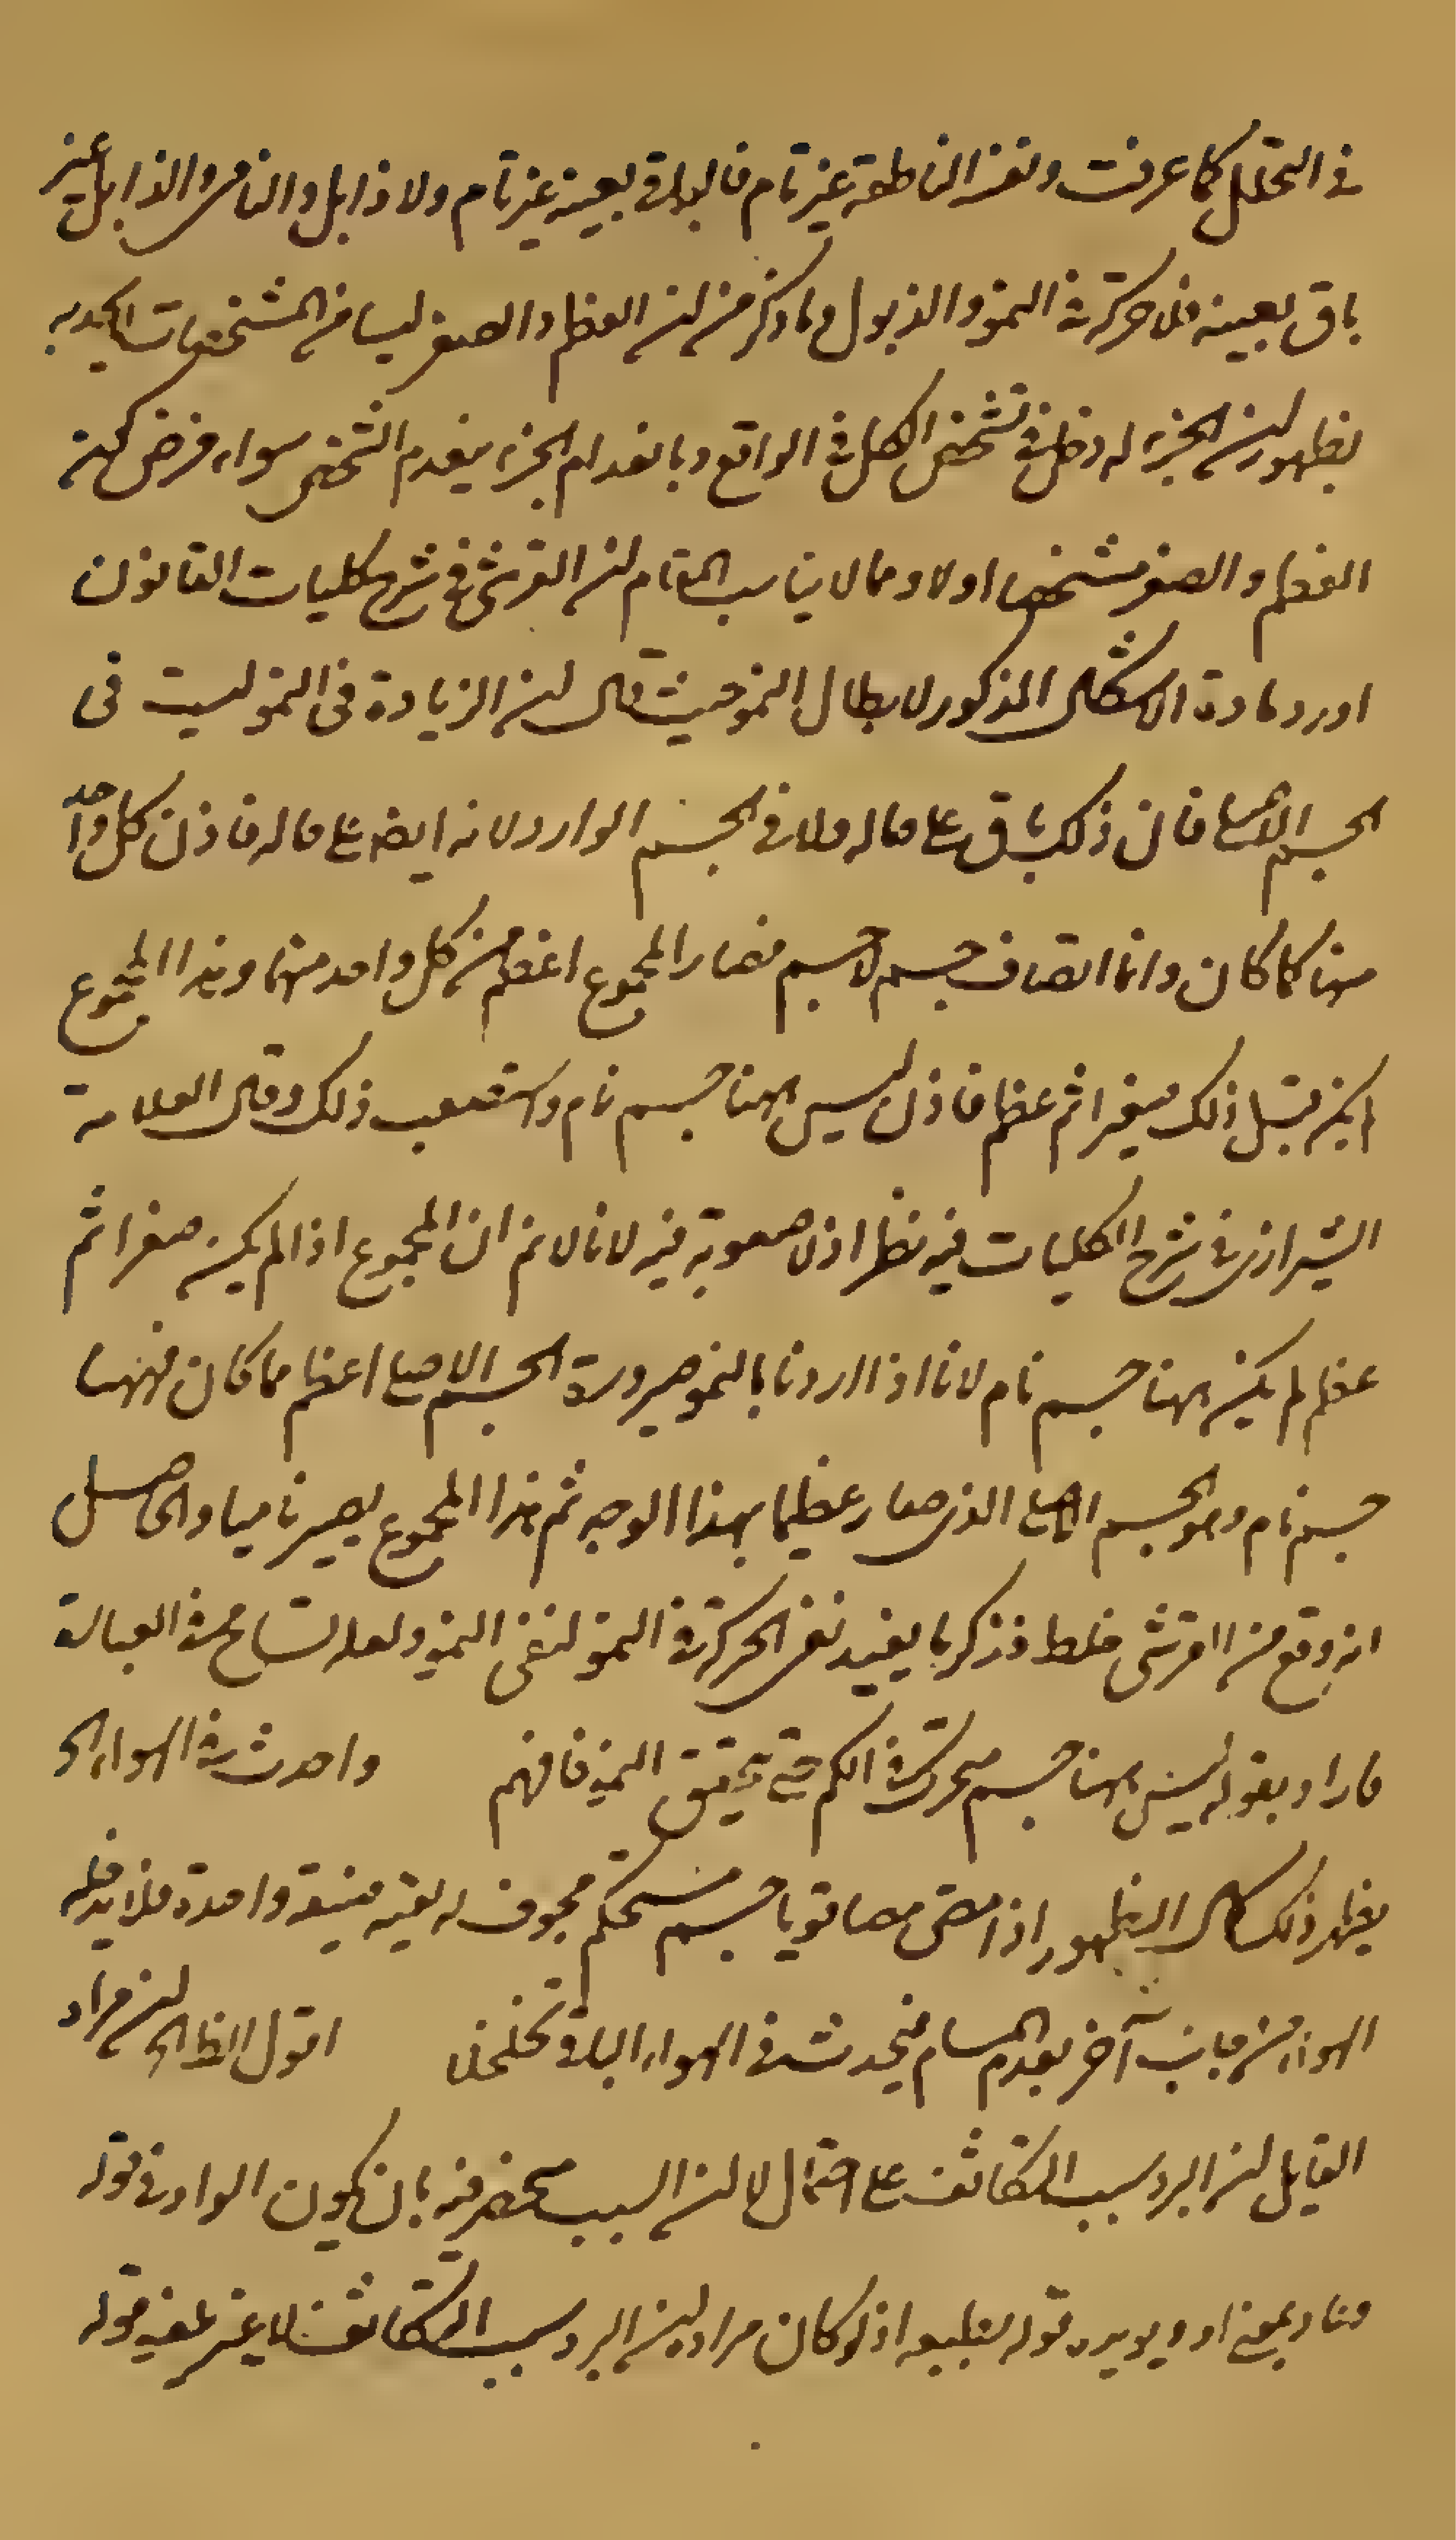 في التحلل كما عرفت ونفس الناطقة غير نام فالباقي بعينه غير نام ولا ذابل والنامي والذابل غير
باق بعينه فلا حركة في النمو والذبول وما ذكر من ان العظم والصغر ليسا من المشخصات لا يجديه
بظهور ان الجزء له دخل في تشخص الكل في الواقع وبانعدام الجزء ينعدم الشخص سواء فرض كون
العظم والصغر مشخصا اولا ومما لا يناسب المقام ان القرشي في شرح كليات القانون
اورد مادة الاشكال المذكور لابطال النمو حيث قال ان الزيادة في النمو ليست في
الجسم الاصلي فان ذلك باق على حاله ولا في الجسم الوارد لانه ايضا على حاله فاذن كل واحد
منها كما كان وانما انضاف جسم لاجسم فصار المجموع اعظم من كل واحد منهما وهذا المجموع
لم يكن قبل ذلك صغيرا ثم عظم فاذن ليس ههنا جسم نام واستصعب ذلك وقال العلامة
الشيرازي في شرح الكليات فيه نظر اذ لا صعوبة فيه لانا لا نم ان المجموع اذا لم يكن صغيرا ثم
عظم لم يكن ههنا جسم نام لانا اذا اردنا بالنمو صيرورة الجسم الاصلي اعظم مما كان فههنا
جسم نام وهو الجسم الاصلي الذي صار عظيما بهذا الوجه ثم هذا المجموع يصير ناميا والحاصل
انه وقع من القرشي خلط فذكر ما يفيد نفي الحركة في النمو لنفي النمو ولعله تسامح في العبارة
فاراد بقوله ليس ههنا جسم متحرك في الكم حتى يتحقق النمو فافهم واحدث في الهواء الخ
يظهر ذلك كمال الظهور اذا مص مصا قويا جسم مستحكم مجوف له بقية ضيقة واحدة فلا يدخله
الهواء من جانب آخر بعدم المسام فيحدث في الهواء الباقي تخلخلا اقول الظاهر ان مراد
القايل ان البرد سبب التكاثف على احتمال لا ان السبب منحصر فيه بان يكون الواو في قوله
وعاد بمعنى او ويويده قوله بطبعه اذ لو كان مراده ان البرد سبب التكاثف لا غير يلغيه قوله